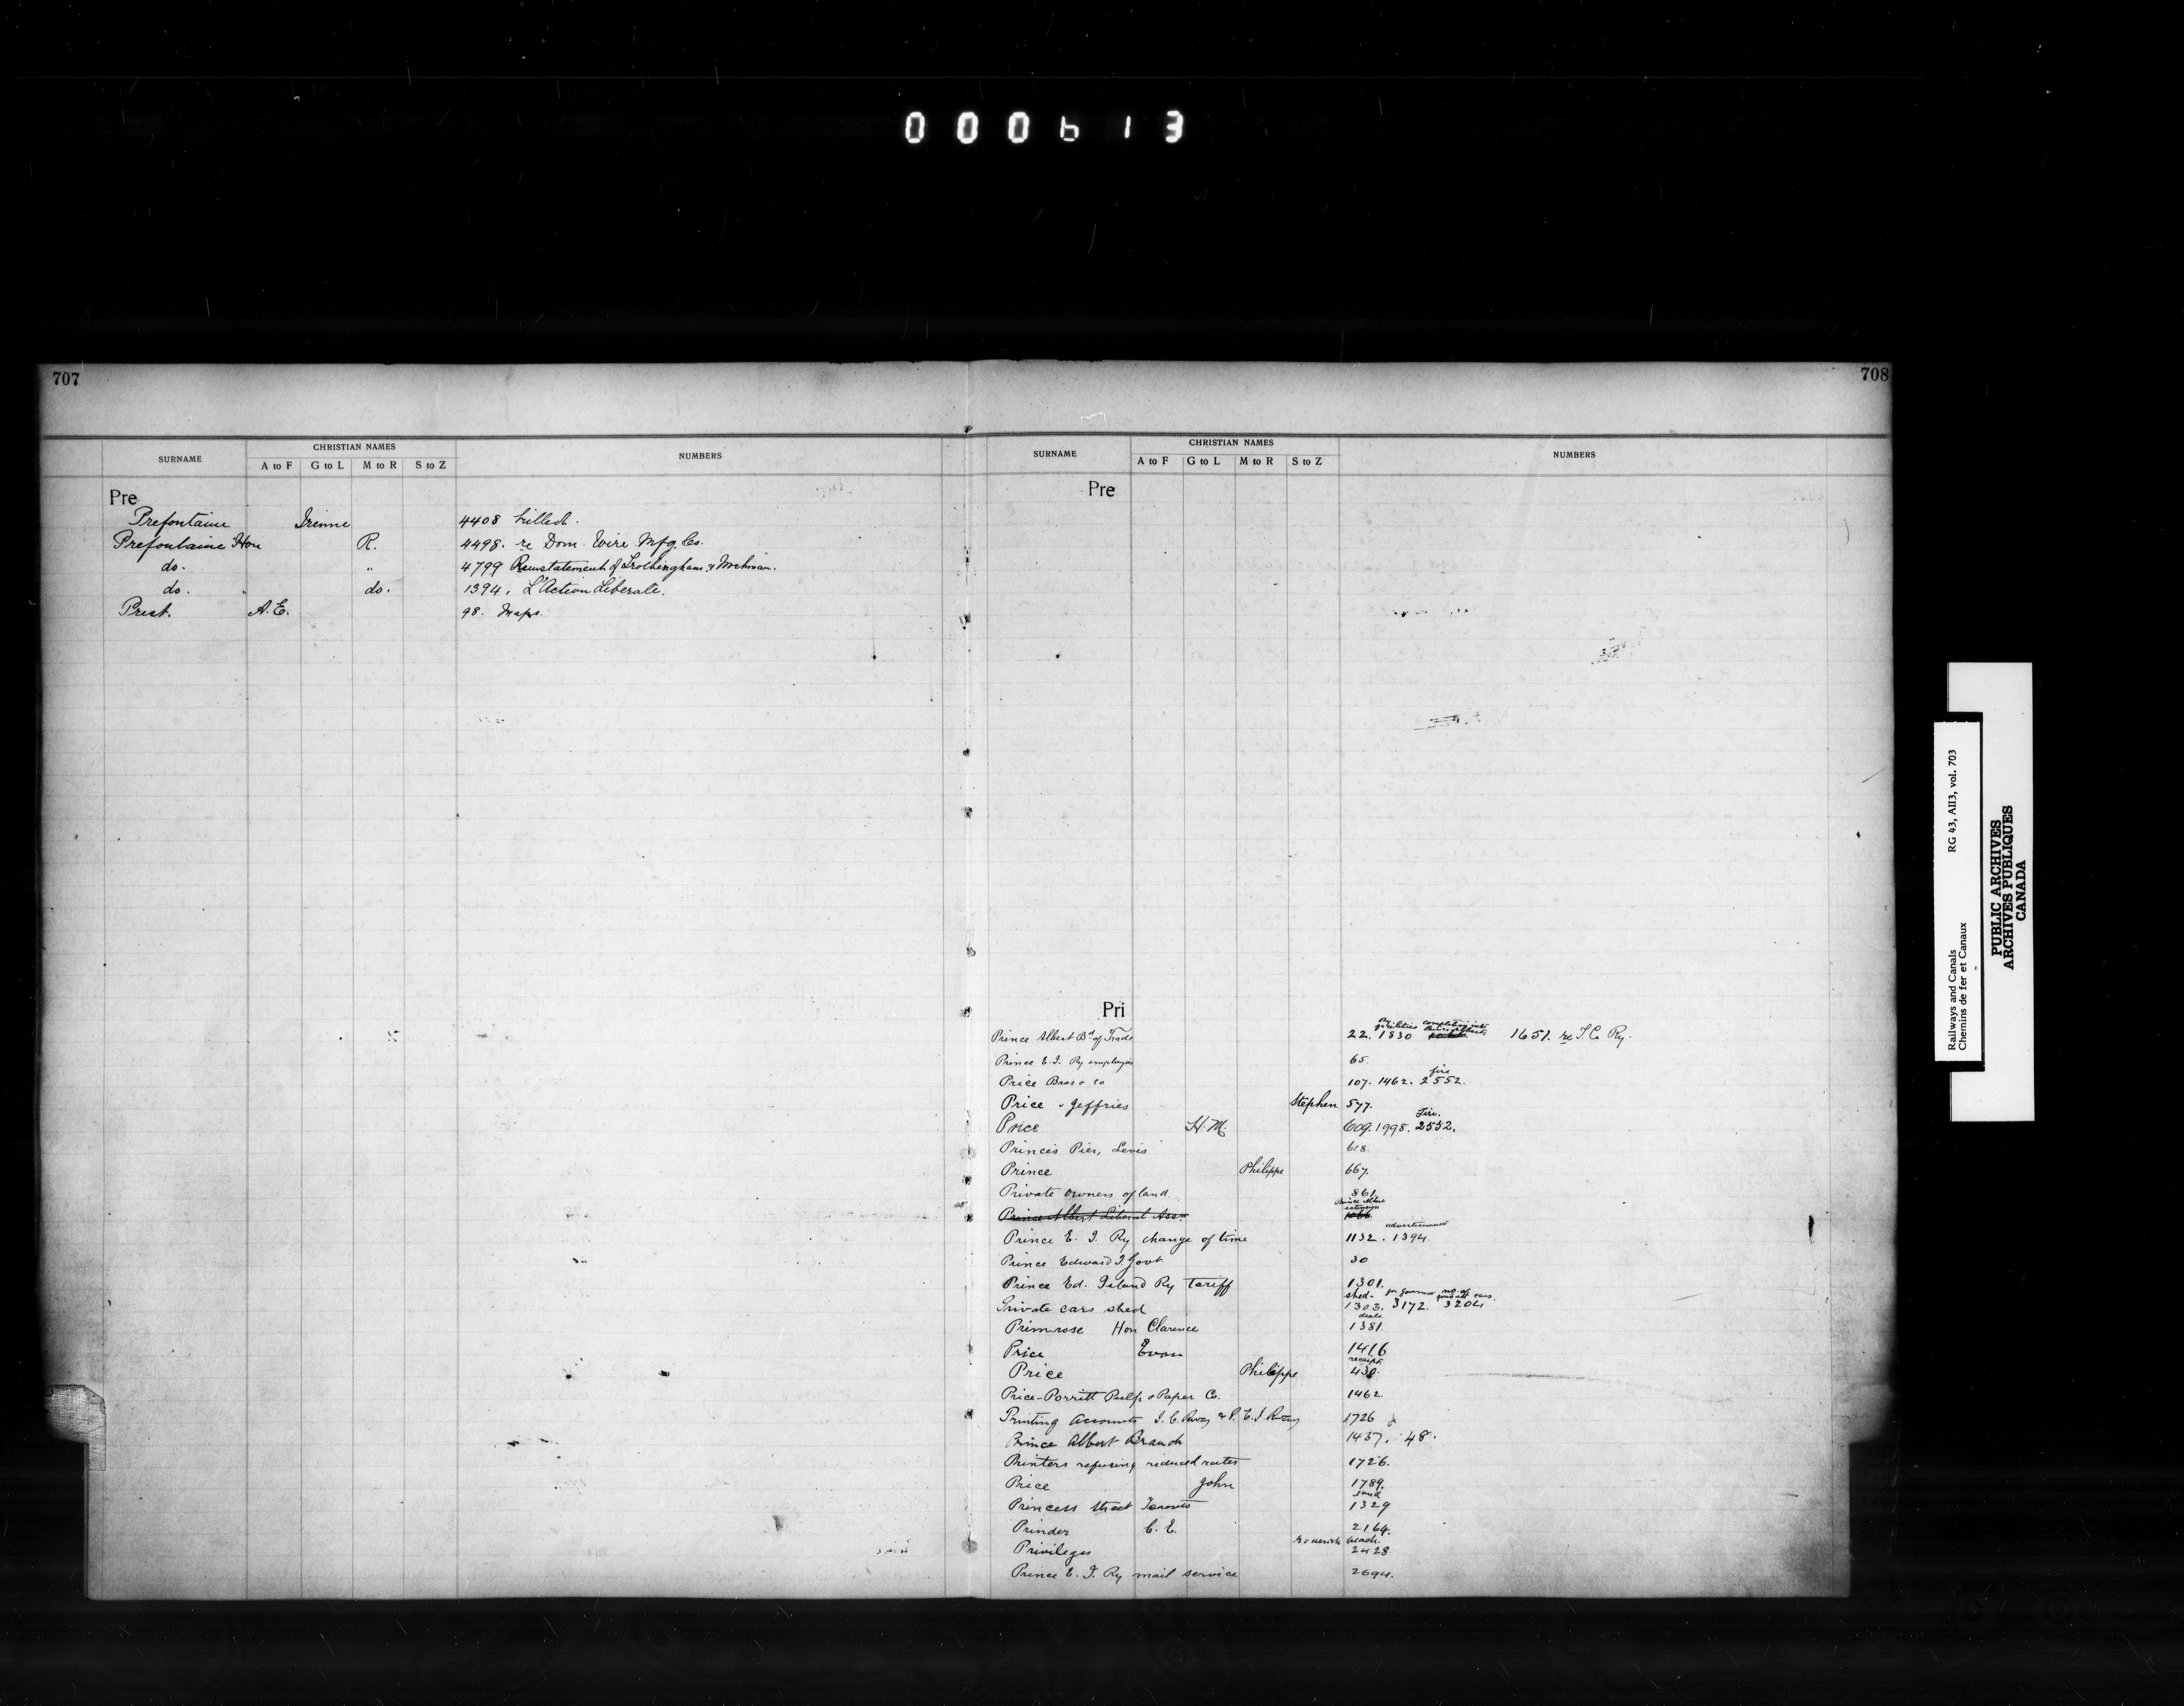 000613
707
SURNAME CHRISTIAN NAMES NUMBERS
A to F G to L M to R S to Z
Pre
Prefontaine Irenne 4408 killed.
Prefontaine Hon R. 4498. re Dom. Wire Mfg. Co.
do. " 4799 Reinstatement of &
do. " do. 1394. L'Action Liberale.
Prest. A.E. 98. Maps.
708
SURNAME CHRISTIAN NAMES NUMBERS
A to F G to L M to R S to Z
Pre
Pri
Prince Albert Bd of Trade 22. Ry facilities 1830 1651. re I.C. Ry.
Prince E.I. Ry employees 65.
Price Bros & Co 107. 1462. fire 2552.
Price & Jeffries Stephen 577.
Price H.M. 609. 1998. Fire. 2552.
Princes Pier, Levis 618.
Prince Philippe 667.
Private owners of land 861.
Prince Albert Liberal Assn Prince Albert extension 1066
Prince E. I. Ry change of time 1132. advertisement 1394.
Prince Edward I. Govt. 30
Prince Ed. Island Ry Tariff 1301.
Private cars shed shed- 1303. for governor 3172. no. of cars. 3204
Primrose Hon Clarence deals 1381.
Price Evan 1416
Price Philippe receipt. 430.
Price-Porritt Pulp & Paper Co. 1462.
Printing Accounts I.C. Rway & P.E.I. Rway 1726
Prince Albert Branch 1437. 48.
Printers refusing reduced rates 1726.
Price John 1789.
Princess Street Toronto land 1329
Prinder C.E. 2164.
Privileges beach. 2428
Prince E. I. Ry mail service 2694.
Railways and Canals RG 43, AII3, vol. 703
Chemins de fer et Canaux
PUBLIC ARCHIVES
ARCHIVES PUBLIQUES
CANADA